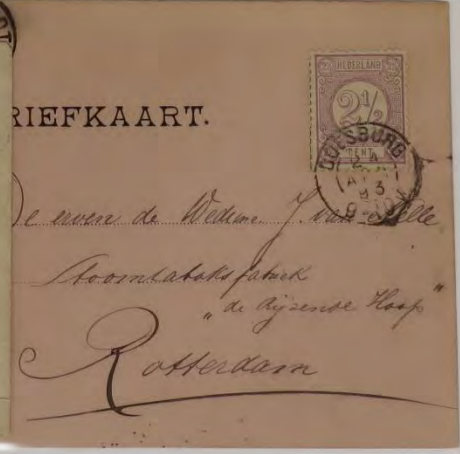 NEDERLAND
2 1/2
CENT
RIEFKAART.
DOESBURG
93
De erven de Weduwe J. van Nelle
Stoomtabaksfabriek
"de Rijzende Hoop"
Rotterdam